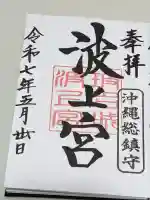 奉拝
沖縄総鎮守
波上宮
令和七年五月廿日